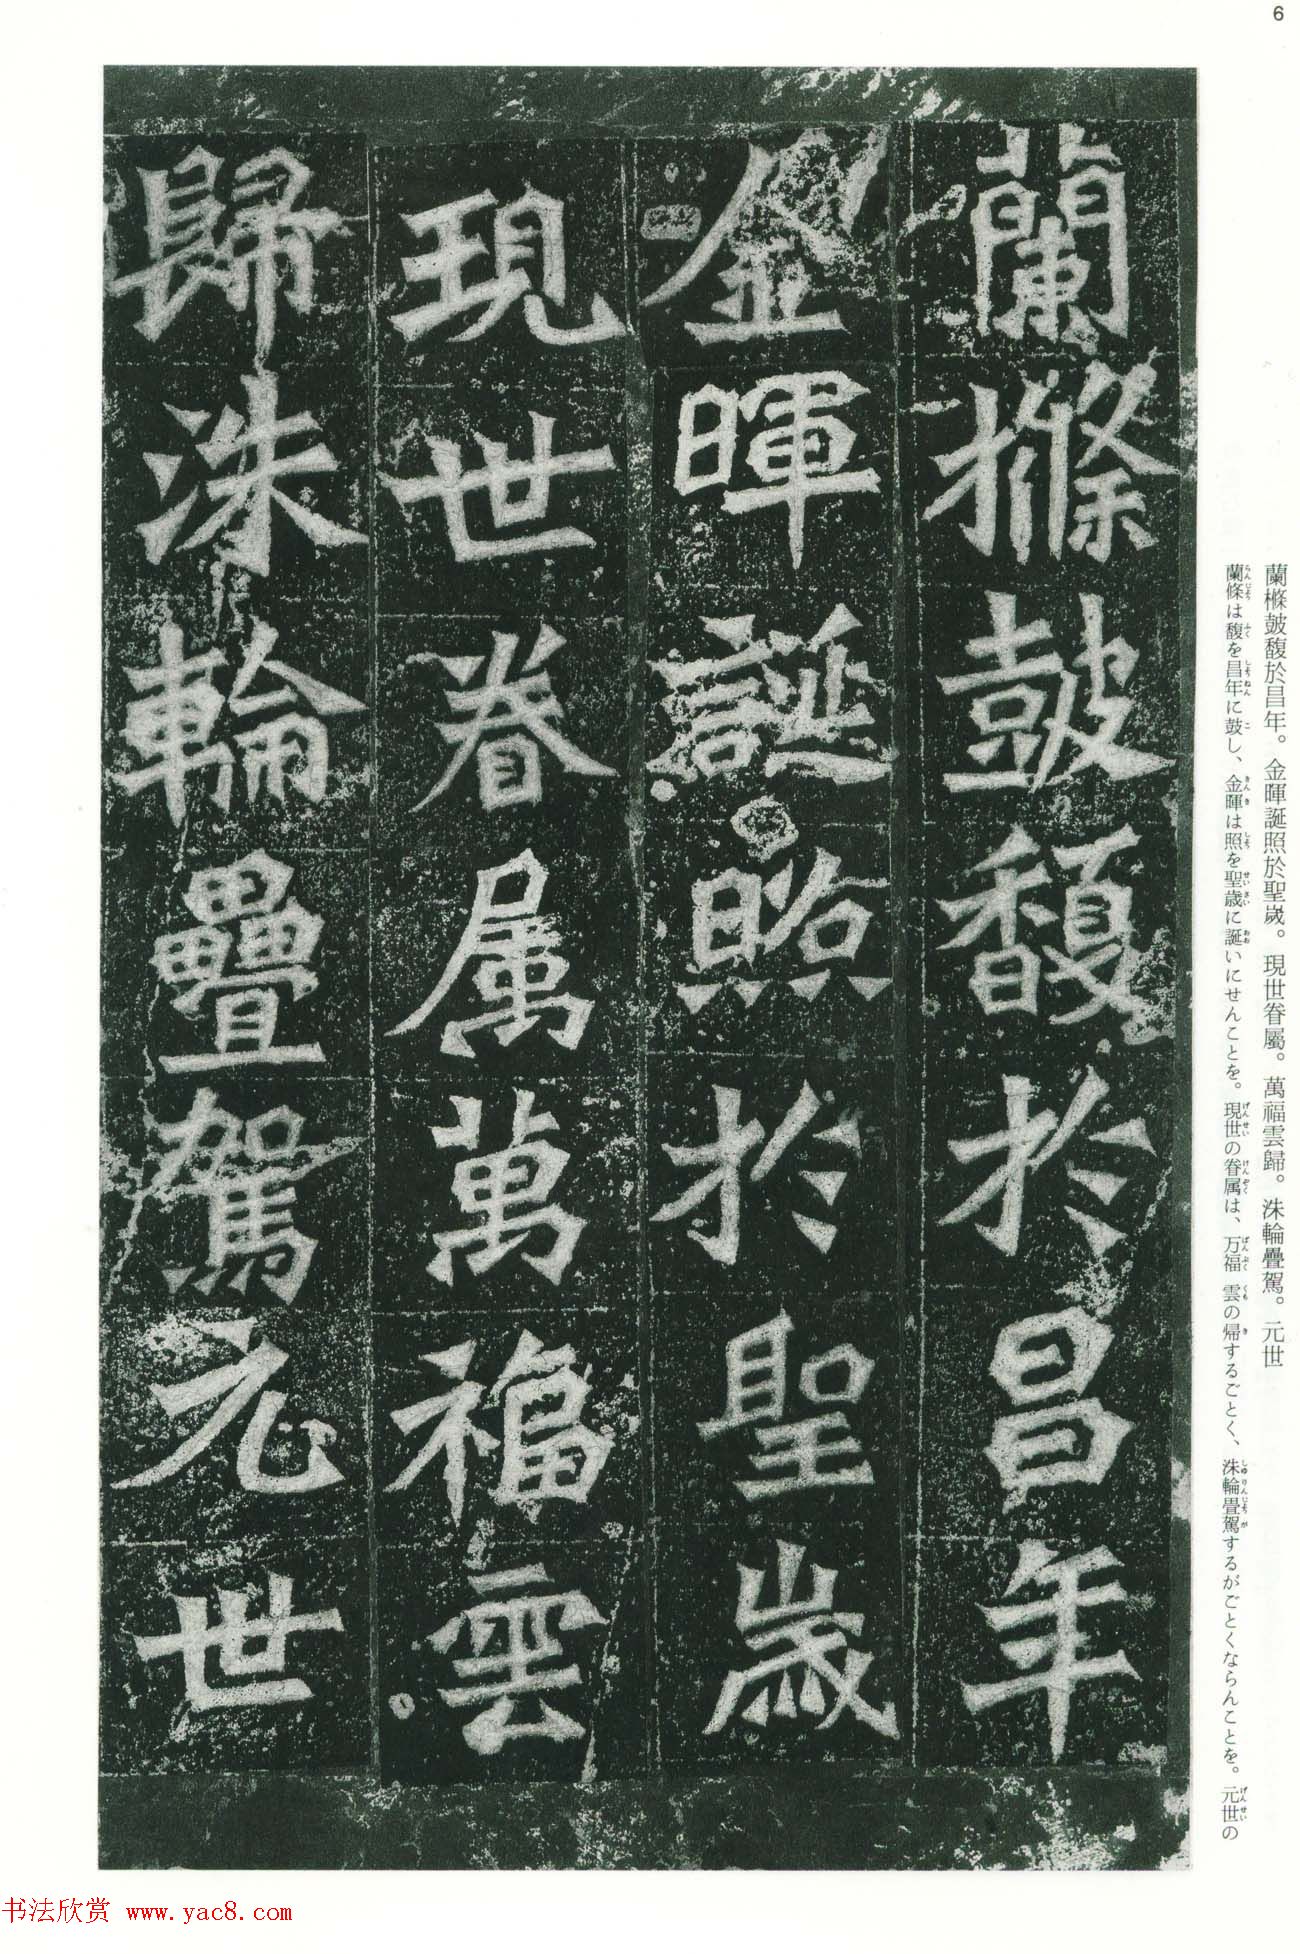 6
蘭樤皷馥於昌年。金暉誕照於聖嵗。現世眷屬。萬福雲歸。洙輪疊駕。元世
蘭條は馥を昌年に鼓し、金暉は照を聖歳に誕いにせんことを。現世の眷属は、万福雲の帰するごとく、洙輪畳駕するがごとくならんことを。元世の
蘭樤皷馥於昌年
金暉誕照於聖嵗
現世眷属萬福雲
歸洙輪疊駕元世
书法欣赏 www.yac8.com